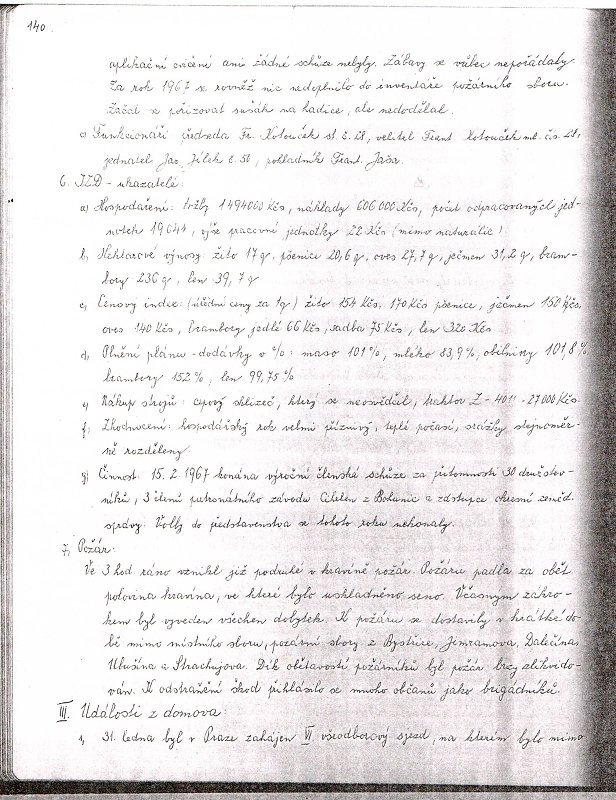 140
aplikační cvičení ani žádné schůze nebyly. Zábavy se vůbec nepořádaly.
Za rok 1967 se rovněž nic nedoplnilo do inventáře požárního sboru.
Začal se pořizovat sušák na hadice, ale nedodělal.
c) Funkcionáři předseda Fr. Kotouček st. č. 28, velitel Frant. Kotouček ml. čís. 28,
jednatel Jar. Jílek č. 50, pokladník Frant. Jaša.
6. JZD - ukazatelé:
a) Hospodaření: tržby 1494000 Kčs, náklady 606 000 Kčs, počet odpracovaných jed-
notek 19044, výše pracovní jednotky 22 Kčs (mimo naturálie)
b) Hektarové výnosy: žito 17 q, pšenice 20,6 q, oves 27,7 q, ječmen 31,2 q, bram-
bory 236 q, len 39,7 q
c) Cenový index: (úřední ceny za 1q) žito 154 Kčs, 170 Kčs pšenice, ječmen 150 Kčs,
oves 140 Kčs, brambory jedlé 66 Kčs, sadba 75 Kčs, len 320 Kčs
d) Plnění plánu - dodávky v %: maso 101%, mléko 83,9%, obilniny 101,8%
brambory 152%, len 99,75%
e) Nákup strojů: cepový sklízeč, který se neosvědčil, traktor Z-4011 - 27000 Kčs
f) Zhodnocení: hospodářský rok velmi příznivý, teplé počasí, srážky stejnoměr-
ně rozděleny
g) Činnost: 15. 2. 1967 konána výroční členská schůze za přítomnosti 30 družstev-
níků, 3 členů patronátního závodu z a zástupce okresní zeměd.
správy. Volby do představenstva se tohoto roku nekonaly.
7) Požár:
Ve 3 hod. ráno vznikl již podruhé v kravíně požár. Požáru padla za oběť
polovina kravína, ve které bylo uskladněno seno. Včasným zákro-
kem byl vyveden všechen dobytek. K požáru se dostavily v krátké do-
bě mimo místního sboru, požární sbory z Bystřice, Jimramova, Dalečína,
Ubušína a Strachujova. Dík obětavosti požárníků byl požár brzy zlikvido-
ván. K odstranění škod přihlásilo se mnoho občanů jako brigádníků.
III. Události z domova:
1, 31. ledna byl v Praze zahájen VI všeodborový sjezd, na kterém bylo mimo